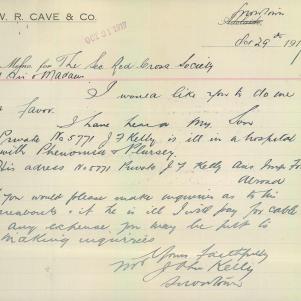 W. R. CAVE & Co.
OCT 31 1917
Snowtown
Adelaide
Oct 29th 191
Memo. for The Sec Red Cross Society
Sir & Madam
I would like you to do me
Favor.
I have hear a my Son
Private No 5771 J F Kelly is ill in a hospital
with Phenomia & Plursey.
His adress No 5771 Private J. F Kelly Aus Imp Fo
Abroad
If you would please make inquiries as to his
reabouts & if he is ill I will pay for cable
any expense you may be put to
making inquiries
Yours Faithfully
John Kelly
Snowtown